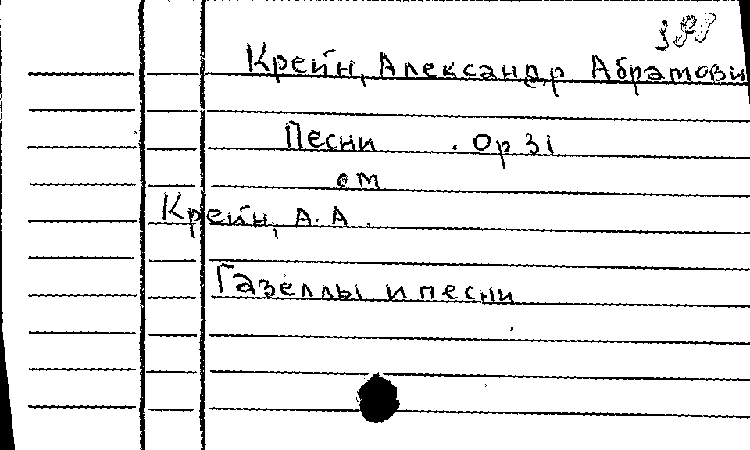 Крейн, Александр Абрамови
Песни . Op 31
см
Крейн, А. А.
Газеллы и песни